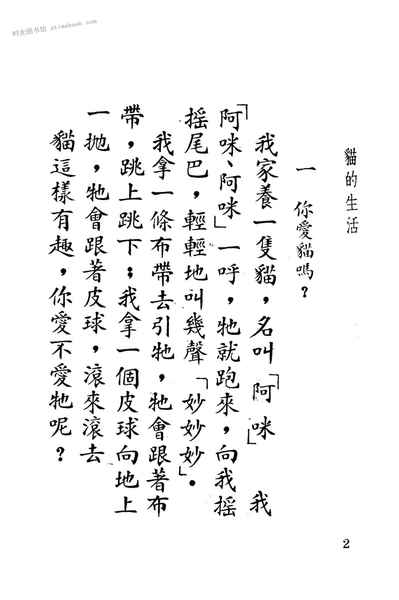 时光图书馆 ptimebook.com
貓的生活
一 你愛貓嗎？
我家養一隻貓，名叫「阿咪」我
「阿咪、阿咪」一呼，牠就跑來，向我搖
搖尾巴，輕輕地叫幾聲「妙妙妙」。
我拿一條布帶去引牠，牠會跟著布
帶，跳上跳下；我拿一個皮球向地上
一拋，牠會跟著皮球，滾來滾去
貓這樣有趣，你愛不愛牠呢？
2